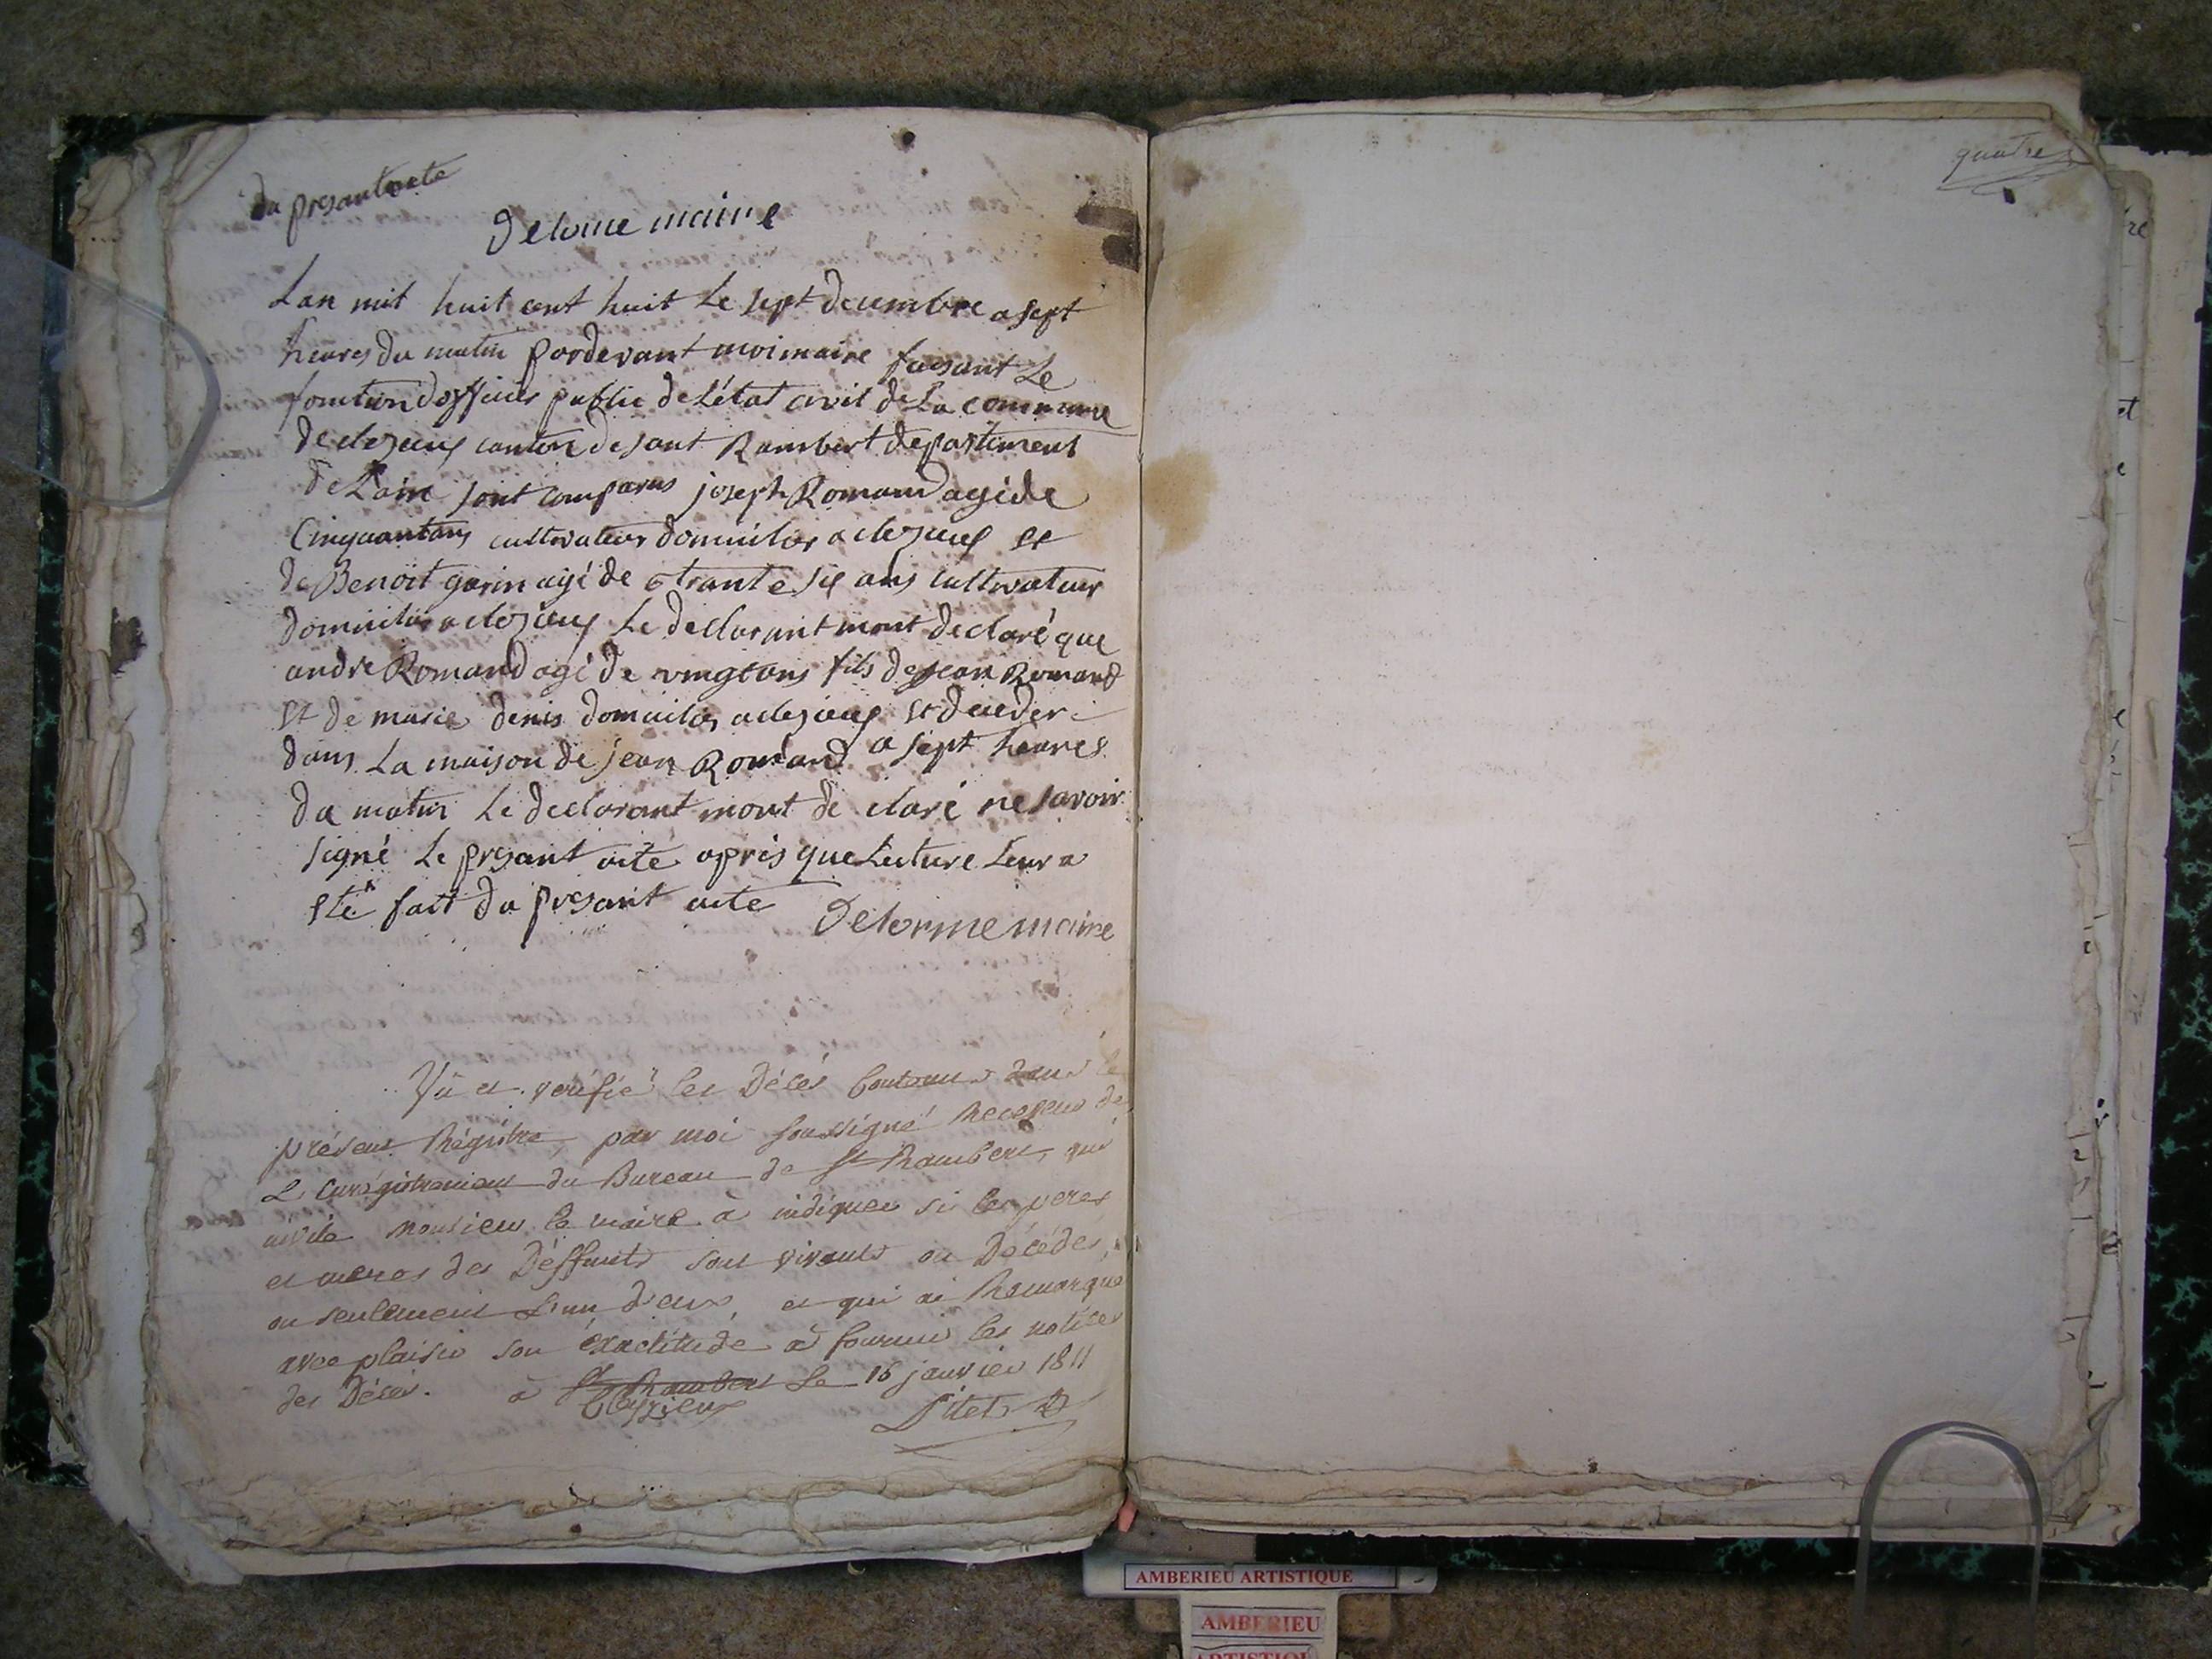 du presant acte
Delorme maire
Lan mil huit cent huit Le sept decembre a sept
heures du matin pardevant moi maire faisant Le
fonction dofficier public de L'état civil de La commune
de clezieux canton de sant Rambert departement
de Lain sont comparus joseph Romand agé de
Cinquantans cultivateur domicilier a clezieux et
de Benoit garin agé de trante six ans cultivateur
domicilier a clezieux Le declarant mont declaré que
andre Romand agé de vingt ans fils de jean Romand
et de marie denis domicilier a clezieux et deceder
dans La maison de jean Romand a sept heures
du matin Le declarant mont de claré ne savoir
signé Le presant acte apris que Lecture Leur a
eté fait du presant acte Delorme maire
Vû et verifié les Décés Contenus dans le
présent Régistre, par moi soussigné Receveur de
L'enrégistrement du Bureau de St Rambert, qui
invite monsieur le maire à indiquer si les peres
et meres des Déffunts sont vivants ou Décédés,
ou seulement L'un d'eux, et qui ai Remarqué
avec plaisir son éxactitude à fournir les notices
des Décés. à St Rambert Le 16 janvier 1811
Cleyzieux
Pitet
quatre
AMBERIEU ARTISTIQUE
AMBERIEU
ARTISTIQUE